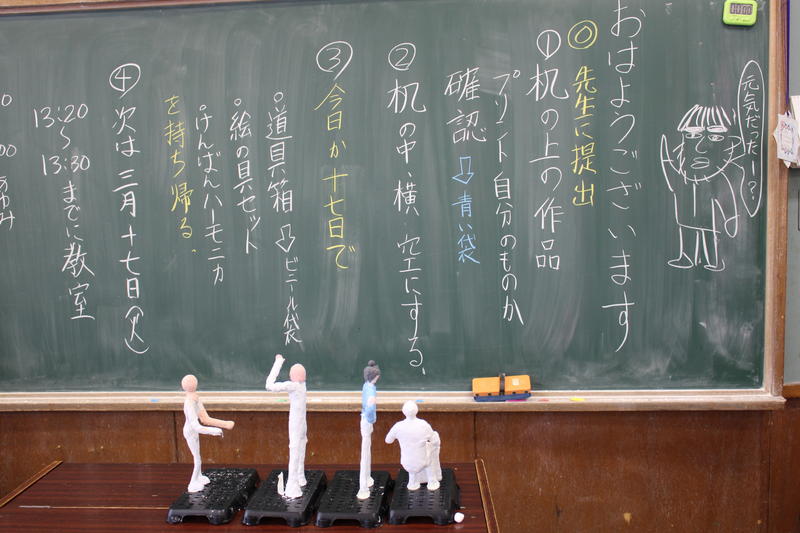 元気だったー??
おはようございます
⓪先生に提出
①机の上の作品
プリント自分のものか
確認⇩青い袋
②机の中・横・空にする、
③今日か十七日で
・道具箱⇩ビニール袋
・絵の具セット
・けんばんハーモニカ
を持ち帰る、
④次は三月十七日(火)
13:20
〜
13:30までに教室